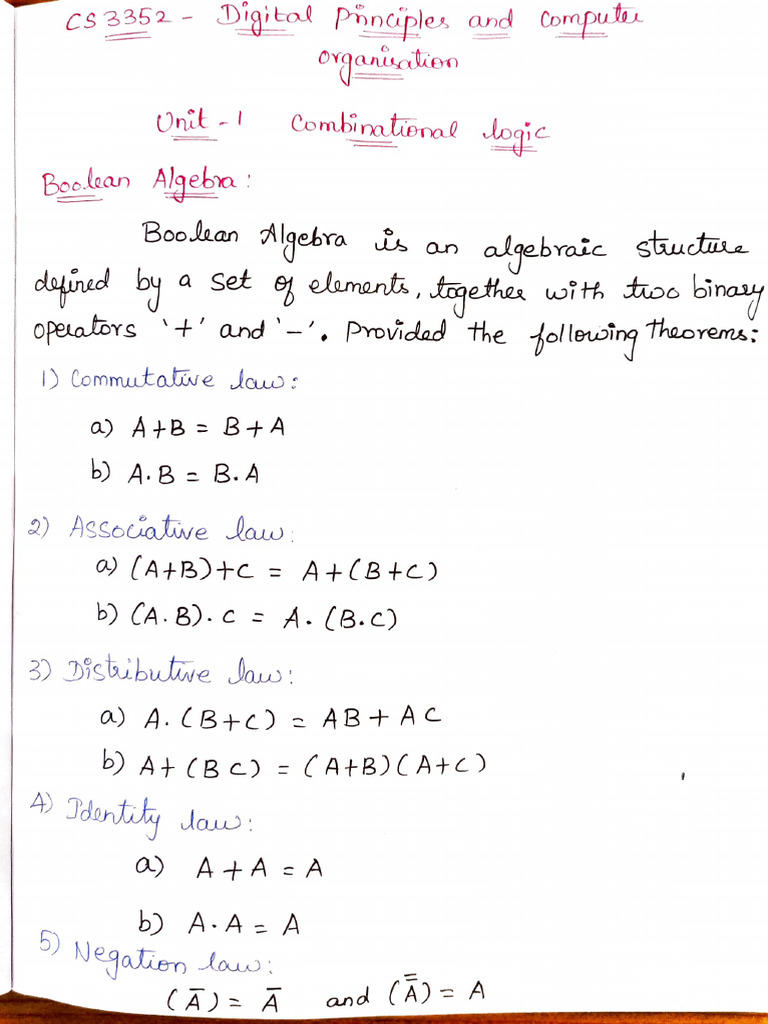 CS3352 - Digital Principles and Computer
Organisation
Unit - 1 Combinational logic
Boolean Algebra :
Boolean Algebra is an algebraic structure
defined by a set of elements, together with two binary
operators '+' and '-'. Provided the following theorems:
1) Commutative law :
a) A+B = B+A
b) A.B = B.A
2) Associative law :
a) (A+B)+C = A+(B+C)
b) (A.B).C = A.(B.C)
3) Distributive law :
a) A.(B+C) = AB + AC
b) A+(BC) = (A+B)(A+C)
4) Identity law :
a) A + A = A
b) A.A = A
5) Negation law :
(A̅) = A̅ and (A̿) = A